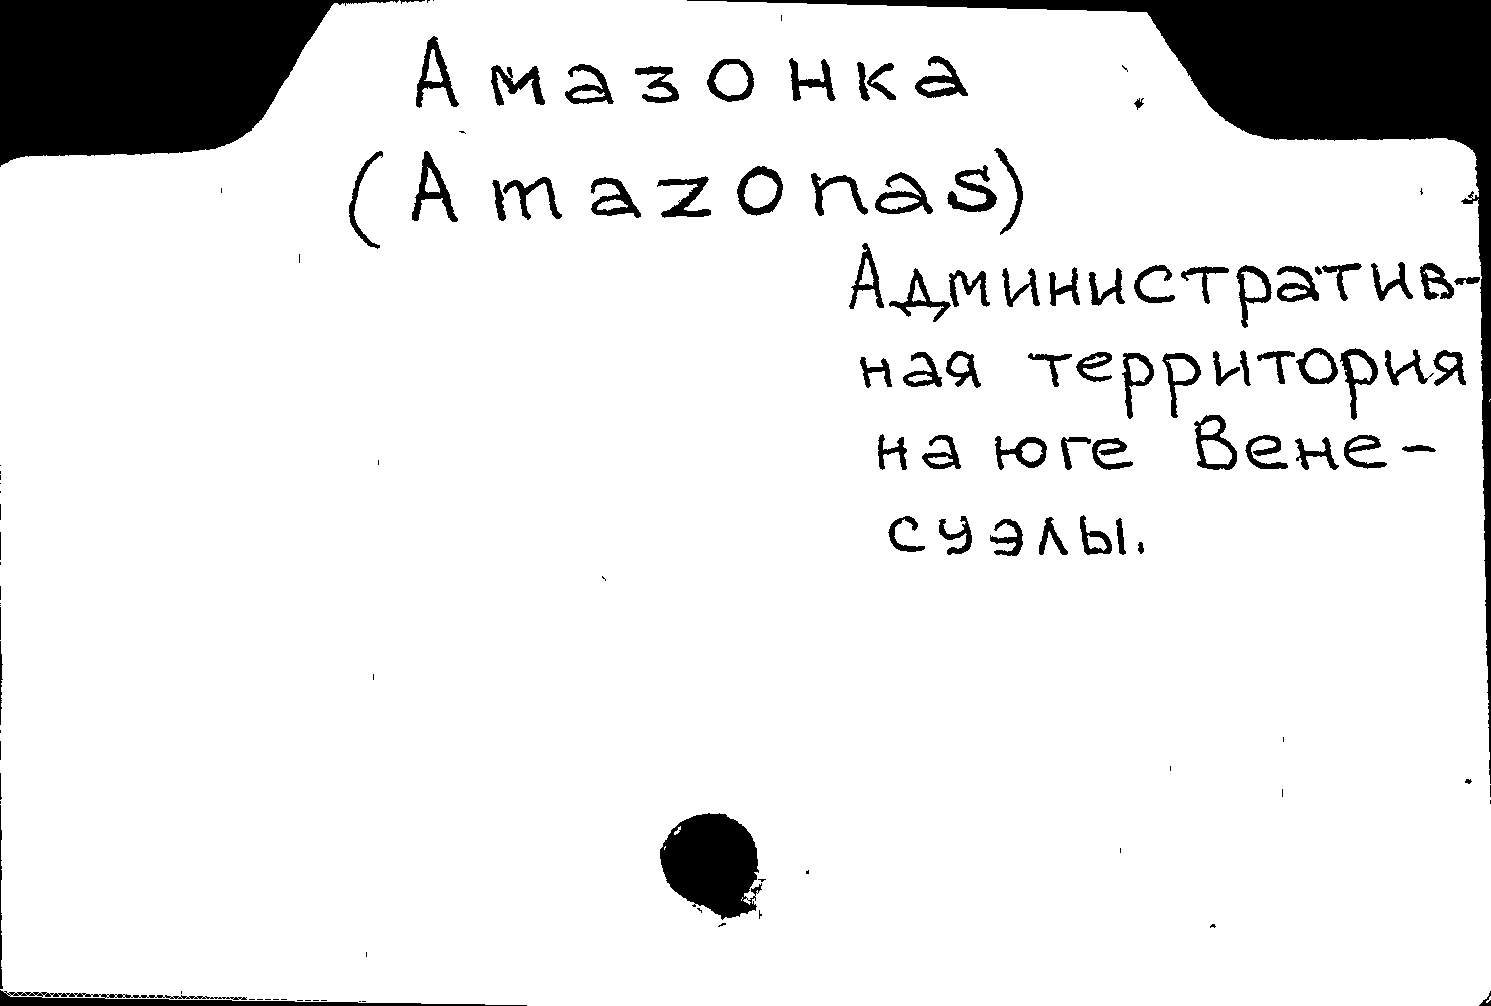 Амазонка
(Amazonas)
Административ-
ная территория
на юге Вене-
суэлы.